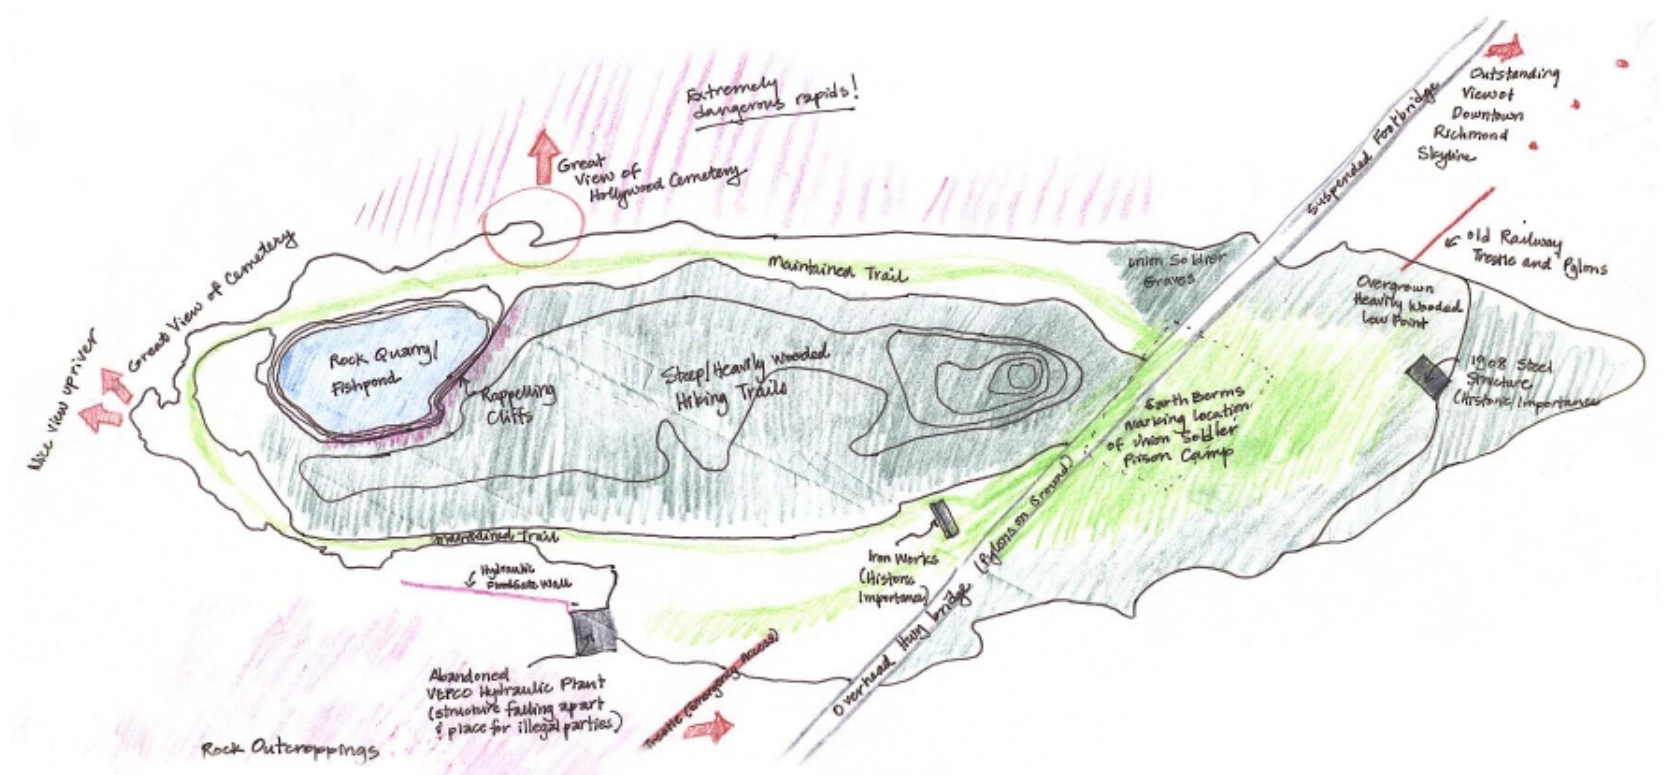 Extremely
dangerous rapids!
Outstanding
View of
Downtown
Richmond
Skyline
Suspended Footbridge
Great
View of
Hollywood Cemetery
Great View of Cemetery
Nice View upriver
Maintained Trail
Union Soldier
Graves
old Railway
Trestle and Pylons
Overgrown
Heavily Wooded
Low Point
1908 Steel
Structure
(Historic Importance)
Rock Quarry/
Fishpond
Rappelling
Cliffs
Steep/Heavily Wooded
Hiking Trails
Earth Berms
marking location
of Union Soldier
Prison Camp
Maintained Trail
Hydraulic
Floodgate Wall
Iron Works
(Historic
Importance)
Overhead Hwy bridge (Pylons on Ground)
Abandoned
VEPCO Hydraulic Plant
(structure falling apart
& place for illegal parties)
Trestle (emergency Access)
Rock Outcroppings